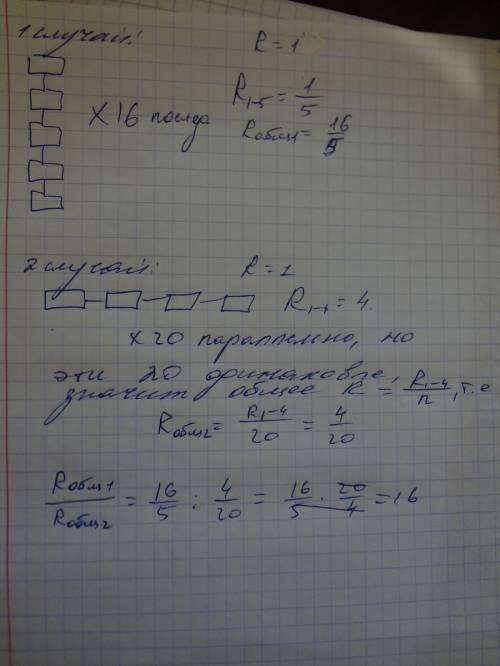 1 случай:
R = 1
R₁₋₅ = 1/5
X16 послед
Rобщ1 = 16/5
2 случай:
R = 1
R₁₋₄ = 4.
x20 параллельно, но
эти 20 одинаковые,
значит общее R = R₁₋₄/n, т.е
Rобщ2 = R₁₋₄/20 = 4/20
Rобщ1/Rобщ2 = 16/5 : 4/20 = 16/5 · 20/4 = 16